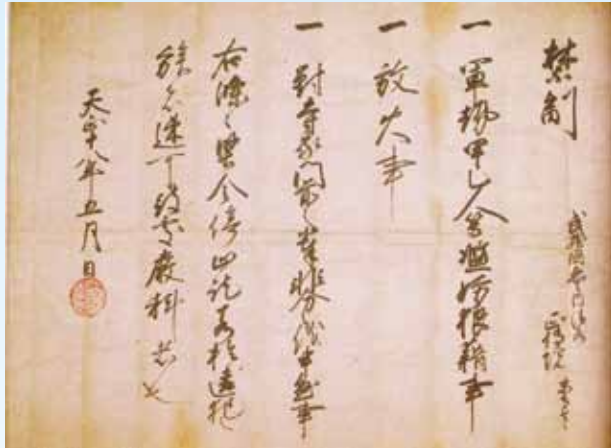 禁制
武蔵国
一 軍勢甲乙人等濫妨狼藉事
一 放火事
一 対寺家門前之輩非分儀申懸事
右條々堅令停止訖若於違犯
族者速可被處嚴科者也
天正十八年五月日